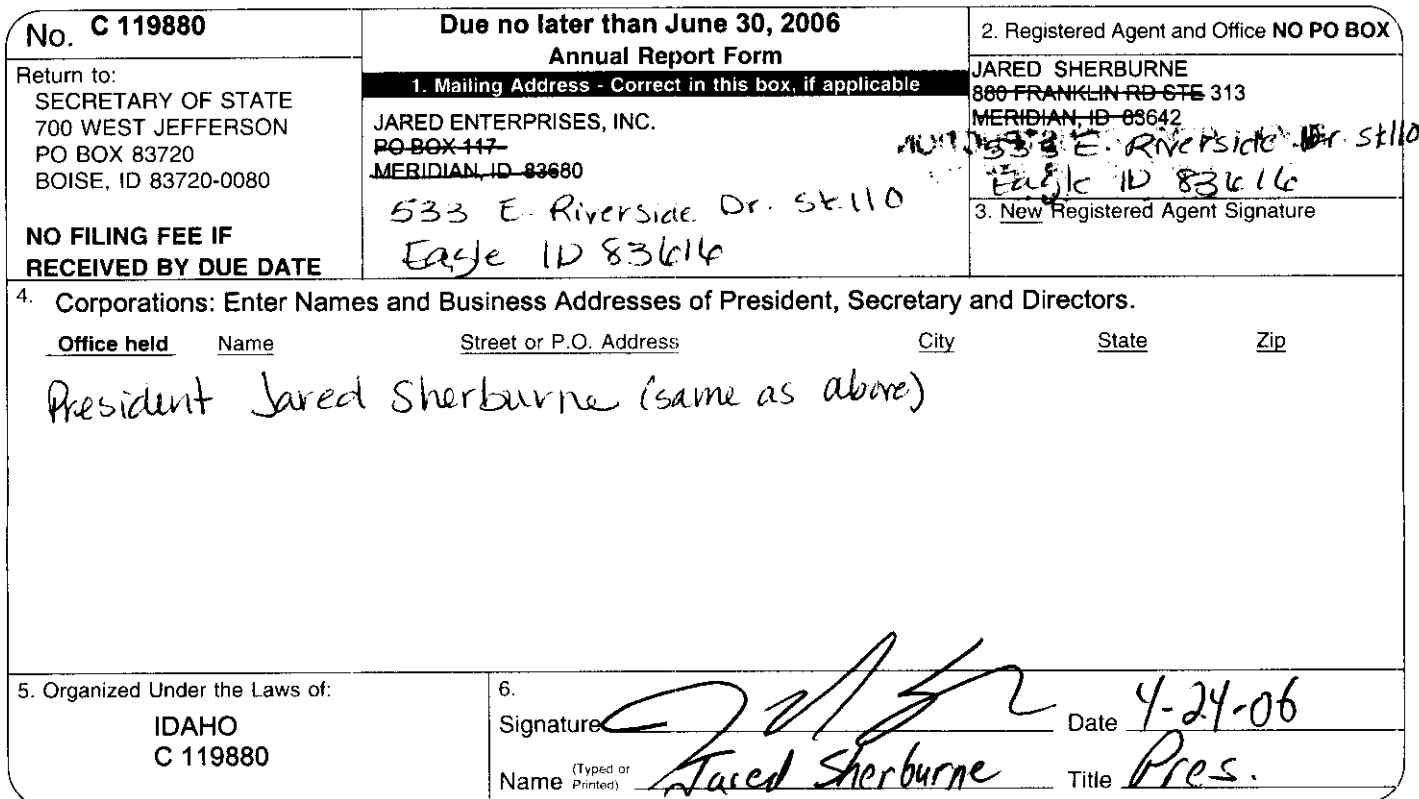 No. C 119880
Return to:
SECRETARY OF STATE
700 WEST JEFFERSON
PO BOX 83720
BOISE, ID 83720-0080
NO FILING FEE IF
RECEIVED BY DUE DATE
Due no later than June 30, 2006
Annual Report Form
1. Mailing Address - Correct in this box, if applicable
JARED ENTERPRISES, INC.
PO BOX 117
MERIDIAN, ID 83680
533 E. Riverside Dr. Ste.110
Eagle ID 83616
2. Registered Agent and Office NO PO BOX
JARED SHERBURNE
880 FRANKLIN RD STE 313
MERIDIAN, ID 83642
533 E. Riverside Dr. St110
Eagle ID 83616
3. New Registered Agent Signature
4. Corporations: Enter Names and Business Addresses of President, Secretary and Directors.
Office held Name Street or P.O. Address City State Zip
President Jared Sherburne (same as above)
5. Organized Under the Laws of:
IDAHO
C 119880
6.
Signature Date 4-24-06
Name (Typed or Printed) Jared Sherburne Title Pres.